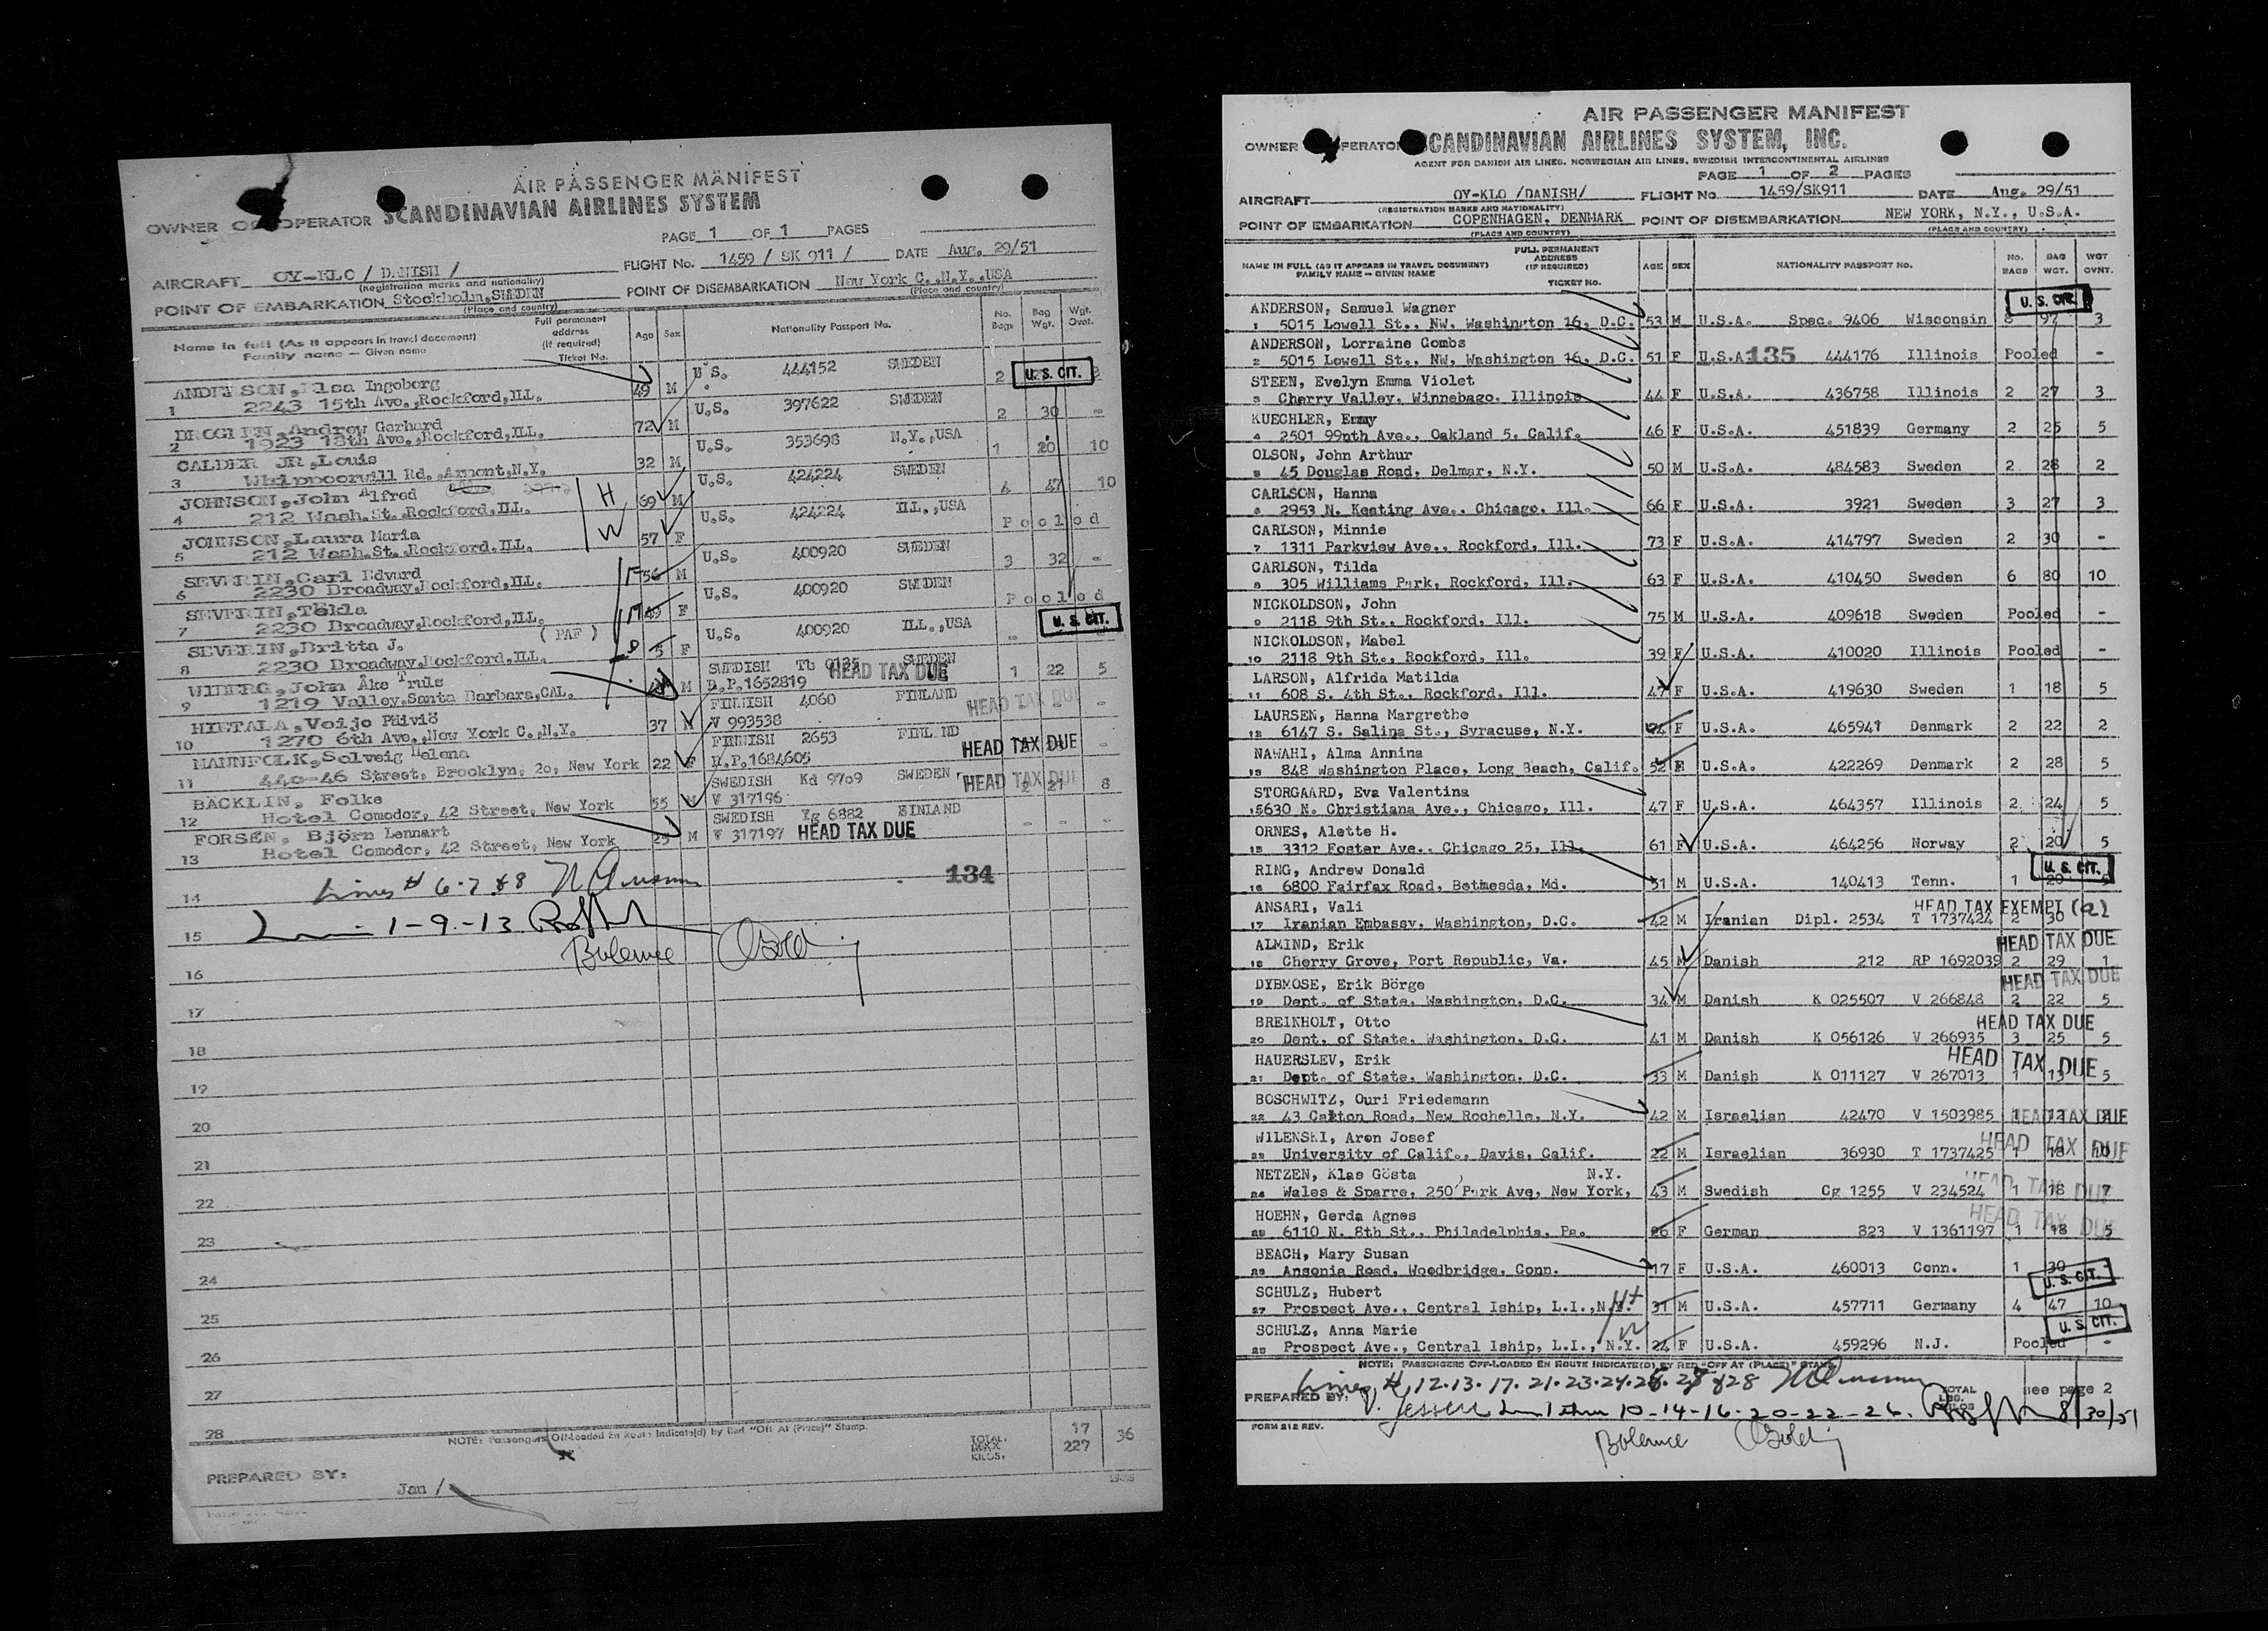 AIR PASSENGER MANIFEST
OWNER OR OPERATOR SCANDINAVIAN AIRLINES SYSTEM
PAGE 1 OF 1 PAGES
AIRCRAFT OY-KLO / DANISH / FLIGHT No. 1459 / SK 911 / DATE Aug. 29/51
(Registration marks and nationality)
POINT OF EMBARKATION Stockholm, SWEDEN POINT OF DISEMBARKATION New York C., N.Y., USA
(Place and country) (Place and country)
Name in full (As it appears in travel document) Family name — Given name Full permanent address (If required) Ticket No. Age Sex Nationality Passport No. No. Bags Bag Wgt. Wgt. Ovnt.
ANDERSON, Elsa Ingeborg
1 2243 15th Ave., Rockford, ILL. 49 M U.S. 444152 SWEDEN 2 U.S. CIT.
Andrew Gerhard
2 1923 18th Ave., Rockford, ILL. 72 M U.S. 397622 SWEDEN 2 30 -
CALDER JR, Louis
3 Whippoorwill Rd., Armont, N.Y. 32 M U.S. 353698 N.Y., USA 1 20 10
JOHNSON, John Alfred
4 212 Wash. St. Rockford, ILL. H 69 M U.S. 424224 SWEDEN 4 47 10
JOHNSON, Laura Maria
5 212 Wash. St. Rockford, ILL. W 57 F U.S. 424224 ILL., USA Pooled
SEVERIN, Carl Edvard
6 2230 Broadway, Rockford, ILL. F 56 M U.S. 400920 SWEDEN 3 32 -
SEVERIN, Tekla
7 2230 Broadway, Rockford, ILL. M 49 F U.S. 400920 SWEDEN Pooled
SEVERIN, Britta J. ( PAF )
8 2230 Broadway, Rockford, ILL. D 5 F U.S. 400920 ILL., USA - U.S. CIT.
WIBERG, John Åke Truls
9 1219 Valley, Santa Barbara, CAL. M SWEDISH Tb 0135 SWEDEN R.P. 1652819 HEAD TAX DUE 1 22 5
HIETALA, Veijo Päiviö
10 1270 6th Ave., New York C., N.Y. 37 M FINNISH 4060 FINLAND V 993538 HEAD TAX DUE
MANNFOLK, Solveig Helena
11 440-46 Street, Brooklyn, 20, New York 22 F FINNISH 2653 FINLAND R.P. 1684605 HEAD TAX DUE
BÄCKLIN, Folke
12 Hotel Comodor, 42 Street, New York 55 M SWEDISH Kd 9709 SWEDEN V 317196 HEAD TAX DUE 2 27 8
FORSÉN, Björn Lennart
13 Hotel Comodor, 42 Street, New York 25 M SWEDISH Yg 6882 FINLAND V 317197 HEAD TAX DUE - - -
14 Lines # 6-7 & 8 134
15 1-9-13
16 Balance
17
18
19
20
21
22
23
24
25
26
27
28
NOTE: Passengers Off-loaded En Route Indicate(d) by Red "Off At (Place)" Stamp.
TOTAL KILOS. 17 227 36
PREPARED BY: Jan /
AIR PASSENGER MANIFEST
OWNER OPERATOR SCANDINAVIAN AIRLINES SYSTEM, INC.
AGENT FOR DANISH AIR LINES, NORWEGIAN AIR LINES, SWEDISH INTERCONTINENTAL AIRLINES
PAGE 1 OF 2 PAGES
AIRCRAFT OY-KLO /DANISH/ FLIGHT No. 1459/SK911 DATE Aug. 29/51
(REGISTRATION MARKS AND NATIONALITY)
POINT OF EMBARKATION COPENHAGEN, DENMARK POINT OF DISEMBARKATION NEW YORK, N.Y., U.S.A.
(PLACE AND COUNTRY) (PLACE AND COUNTRY)
NAME IN FULL (AS IT APPEARS IN TRAVEL DOCUMENT) FAMILY NAME - GIVEN NAME FULL PERMANENT ADDRESS (IF REQUIRED) TICKET No. AGE SEX NATIONALITY PASSPORT NO. No. BAGS BAG WGT. WGT OVNT.
ANDERSON, Samuel Wagner U.S. CIT.
1 5015 Lowell St., NW, Washington 16, D.C. 53 M U.S.A. Spec. 9406 Wisconsin 8 97 3
ANDERSON, Lorraine Combs
2 5015 Lowell St., NW, Washington 16, D.C. 51 F U.S.A 135 444176 Illinois Pooled -
STEEN, Evelyn Emma Violet
3 Cherry Valley, Winnebago, Illinois 44 F U.S.A. 436758 Illinois 2 27 3
KUECHLER, Emmy
4 2501 99nth Ave., Oakland 5, Calif. 46 F U.S.A. 451839 Germany 2 25 5
OLSON, John Arthur
5 45 Douglas Road, Delmar, N.Y. 50 M U.S.A. 484583 Sweden 2 28 2
CARLSON, Hanna
6 2953 N. Keating Ave., Chicago, Ill. 66 F U.S.A. 3921 Sweden 3 27 3
CARLSON, Minnie
7 1311 Parkview Ave., Rockford, Ill. 73 F U.S.A. 414797 Sweden 2 30 -
CARLSON, Tilda
8 305 Williams Park, Rockford, Ill. 63 F U.S.A. 410450 Sweden 6 80 10
NICKOLDSON, John
9 2118 9th St., Rockford, Ill. 75 M U.S.A. 409618 Sweden Pooled -
NICKOLDSON, Mabel
10 2118 9th St., Rockford, Ill. 39 F U.S.A. 410020 Illinois Pooled -
LARSON, Alfrida Matilda
11 608 S. 4th St., Rockford, Ill. 47 F U.S.A. 419630 Sweden 1 18 5
LAURSEN, Hanna Margrethe
12 6147 S. Salina St., Syracuse, N.Y. F U.S.A. 465941 Denmark 2 22 2
NAWAHI, Alma Annina
13 848 Washington Place, Long Beach, Calif. 52 F U.S.A. 422269 Denmark 2 28 5
STORGAARD, Eva Valentina
5630 N. Christiana Ave., Chicago, Ill. 47 F U.S.A. 464357 Illinois 2 24 5
ORNES, Alette H.
15 3312 Foster Ave., Chicago 25, Ill. 61 F U.S.A. 464256 Norway 2 20 5
RING, Andrew Donald U.S. CIT.
16 6800 Fairfax Road, Bethesda, Md. 51 M U.S.A. 140413 Tenn. 1 20
ANSARI, Vali HEAD TAX EXEMPT (a)
17 Iranian Embassy, Washington, D.C. 42 M Iranian Dipl. 2534 T 1737424 2 30
ALMIND, Erik HEAD TAX DUE
18 Cherry Grove, Port Republic, Va. 45 M Danish 212 RP 1692039 2 29 1
DYBMOSE, Erik Börge HEAD TAX DUE
19 Dept. of State, Washington, D.C. 34 M Danish K 025507 V 266848 2 22 5
BREINHOLT, Otto HEAD TAX DUE
20 Dept. of State, Washington, D.C. 41 M Danish K 056126 V 266935 3 25 5
HAUERSLEV, Erik HEAD TAX DUE
21 Dept. of State, Washington, D.C. 33 M Danish K 011127 V 267013 1 13 5
BOSCHWITZ, Ouri Friedemann
22 43 Calton Road, New Rochelle, N.Y. 42 M Israelian 42470 V 1503985 HEAD TAX DUE
WILENSKI, Aron Josef HEAD TAX DUE
23 University of Calif., Davis, Calif. 22 M Israelian 36930 T 1737425 1 18 10
NETZEN, Klas Gösta N.Y.
24 Wales & Sparre, 250 Park Ave, New York, 43 M Swedish Cg 1255 V 234524 1 18 7 HEAD TAX DUE
HOEHN, Gerda Agnes HEAD TAX DUE
25 6110 N. 8th St., Philadelphia, Pa. 26 F German 823 V 1361197 1 18 5
BEACH, Mary Susan
26 Ansonia Road, Woodbridge, Conn. 17 F U.S.A. 460013 Conn. 1 30 U.S. CIT.
SCHULZ, Hubert
27 Prospect Ave., Central Iship, L.I., N.Y. H 31 M U.S.A. 457711 Germany 4 47 10
SCHULZ, Anna Marie U.S. CIT.
28 Prospect Ave., Central Iship, L.I., N.Y. W 24 F U.S.A. 459296 N.J. Pooled -
NOTE: PASSENGERS OFF-LOADED EN ROUTE INDICATE(D) BY RED "OFF AT (PLACE)" STAMP
Lines # 12-13-17-21-23-24-25-27 & 28
PREPARED BY: J. Jessen TOTAL LBS. KILOS see page 2
Line 1 thru 10-14-16-20-22-26. 8/30/51
FORM 212 REV.
Balance